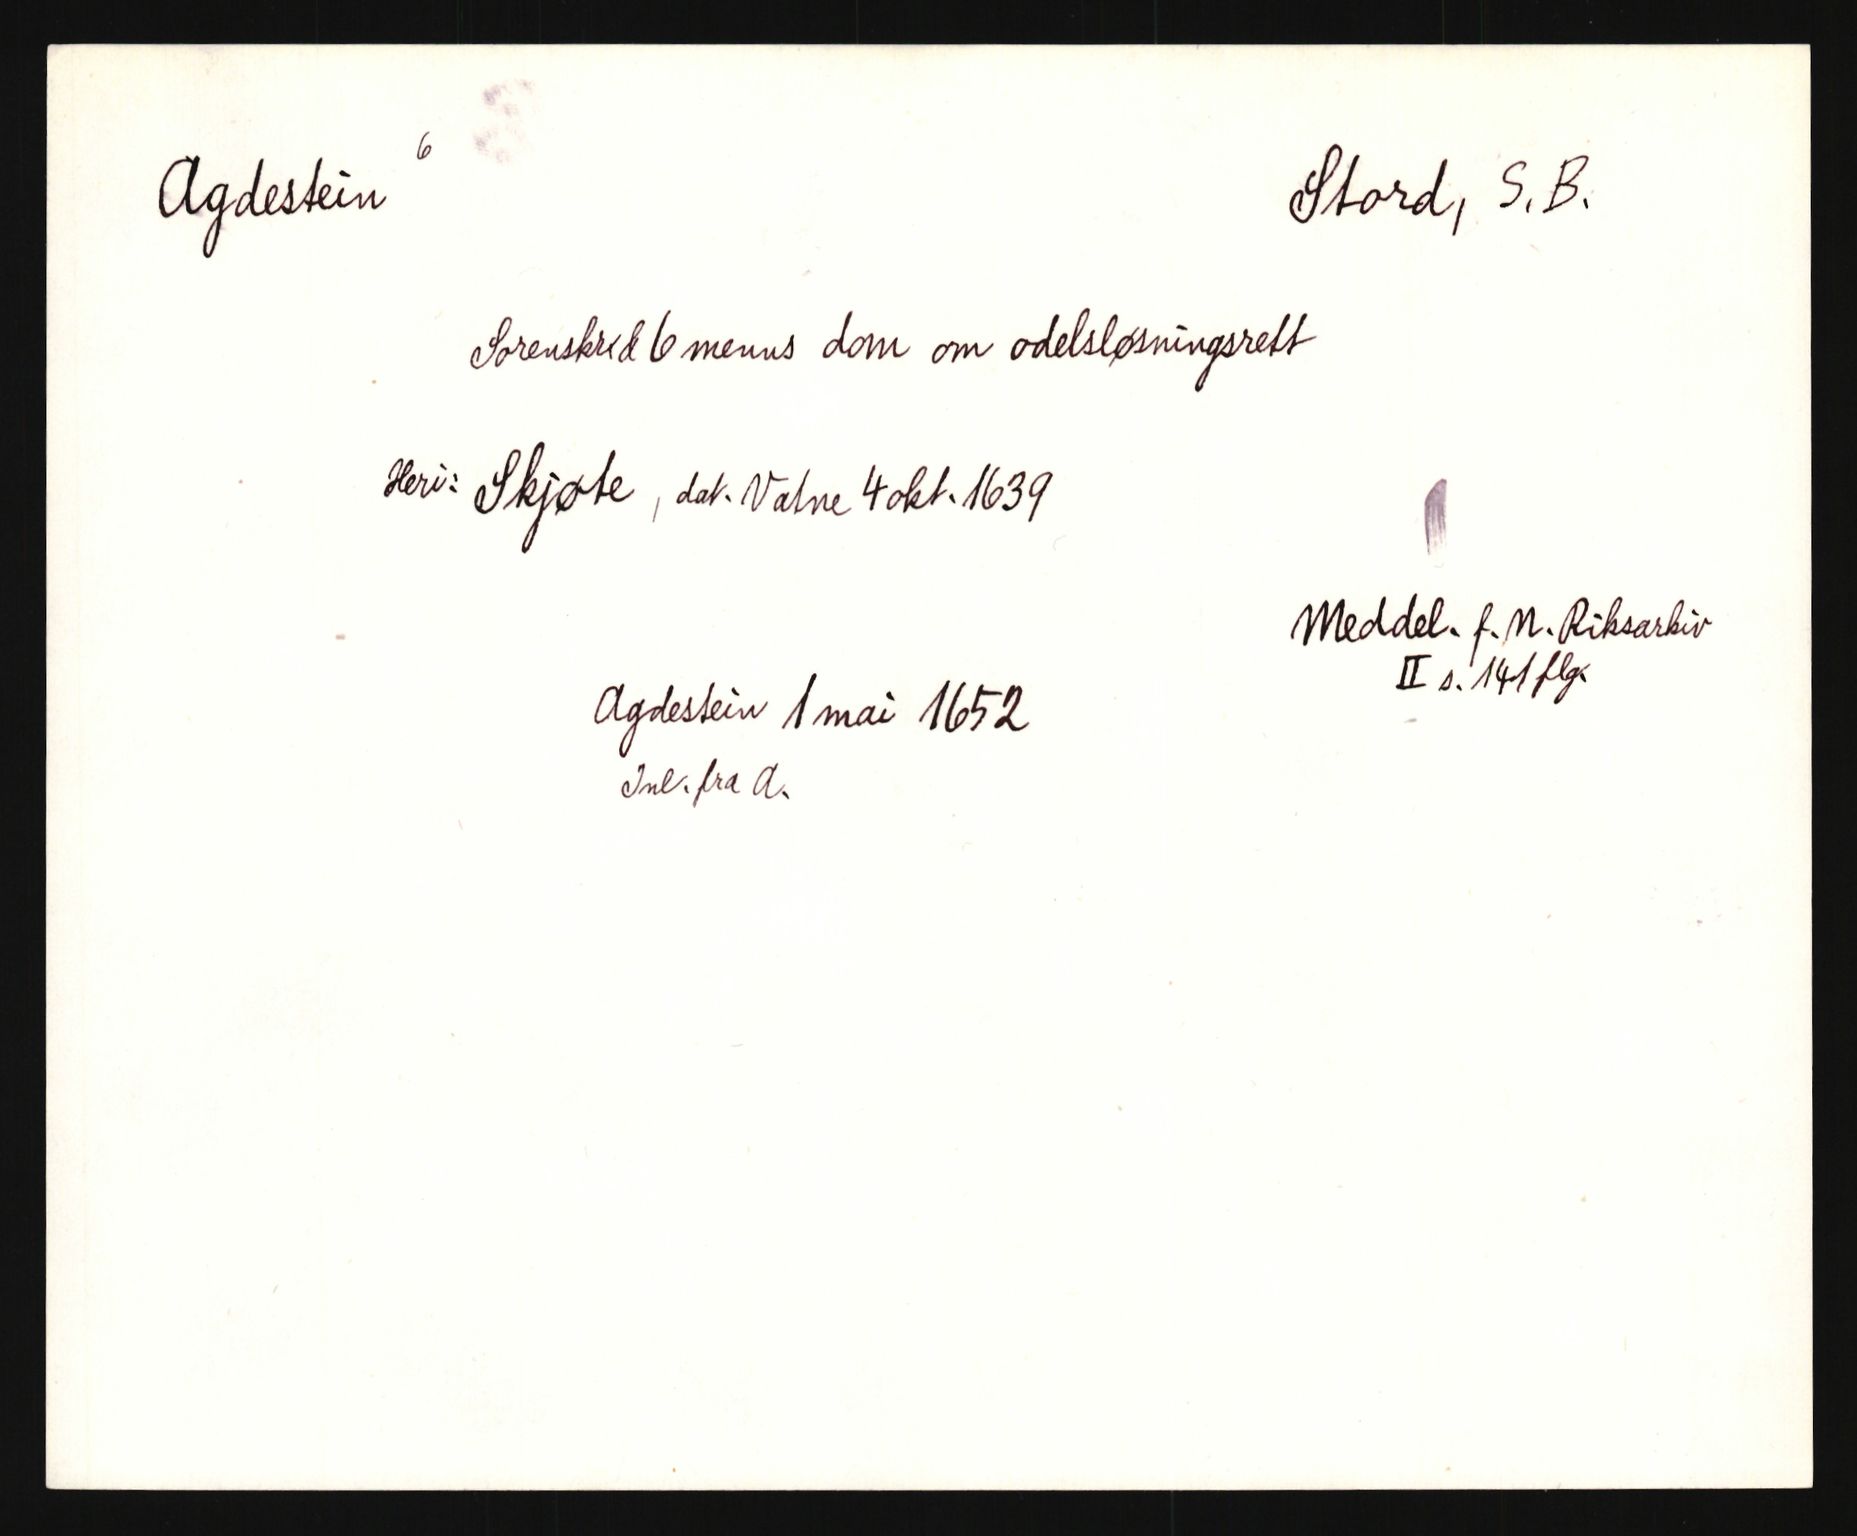 Agdestein 6
Stord, S. B.
Sorenskr. & 6 menns dom om odelsløsningsrett
Heri: Skjøte, dat. Vatne 4 okt. 1639
Meddel. f. N. Riksarkiv
II s. 141 flg.
Agdestein 1 mai 1652
Inl. fra A.